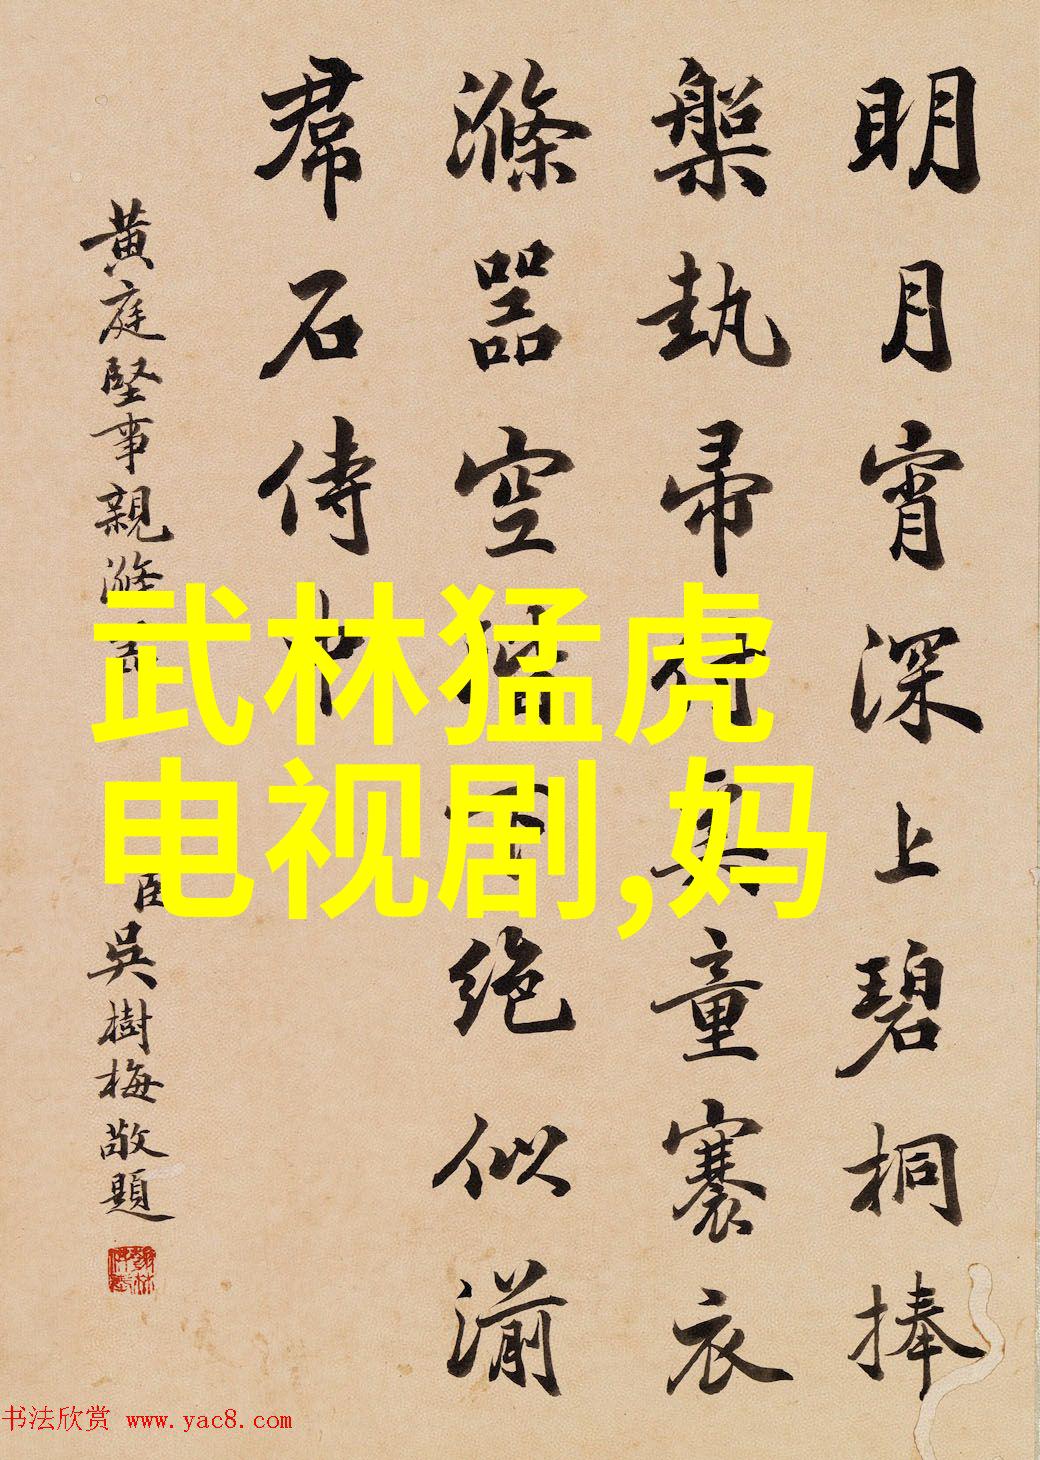 明月宵深上碧桐捧
槃執帚童褰衣
滌器空絕似湔
帬石侍中
黃庭堅事親滌
臣吳樹梅敬題
武林猛虎
电视剧,妈
书法欣赏 www.yac8.com